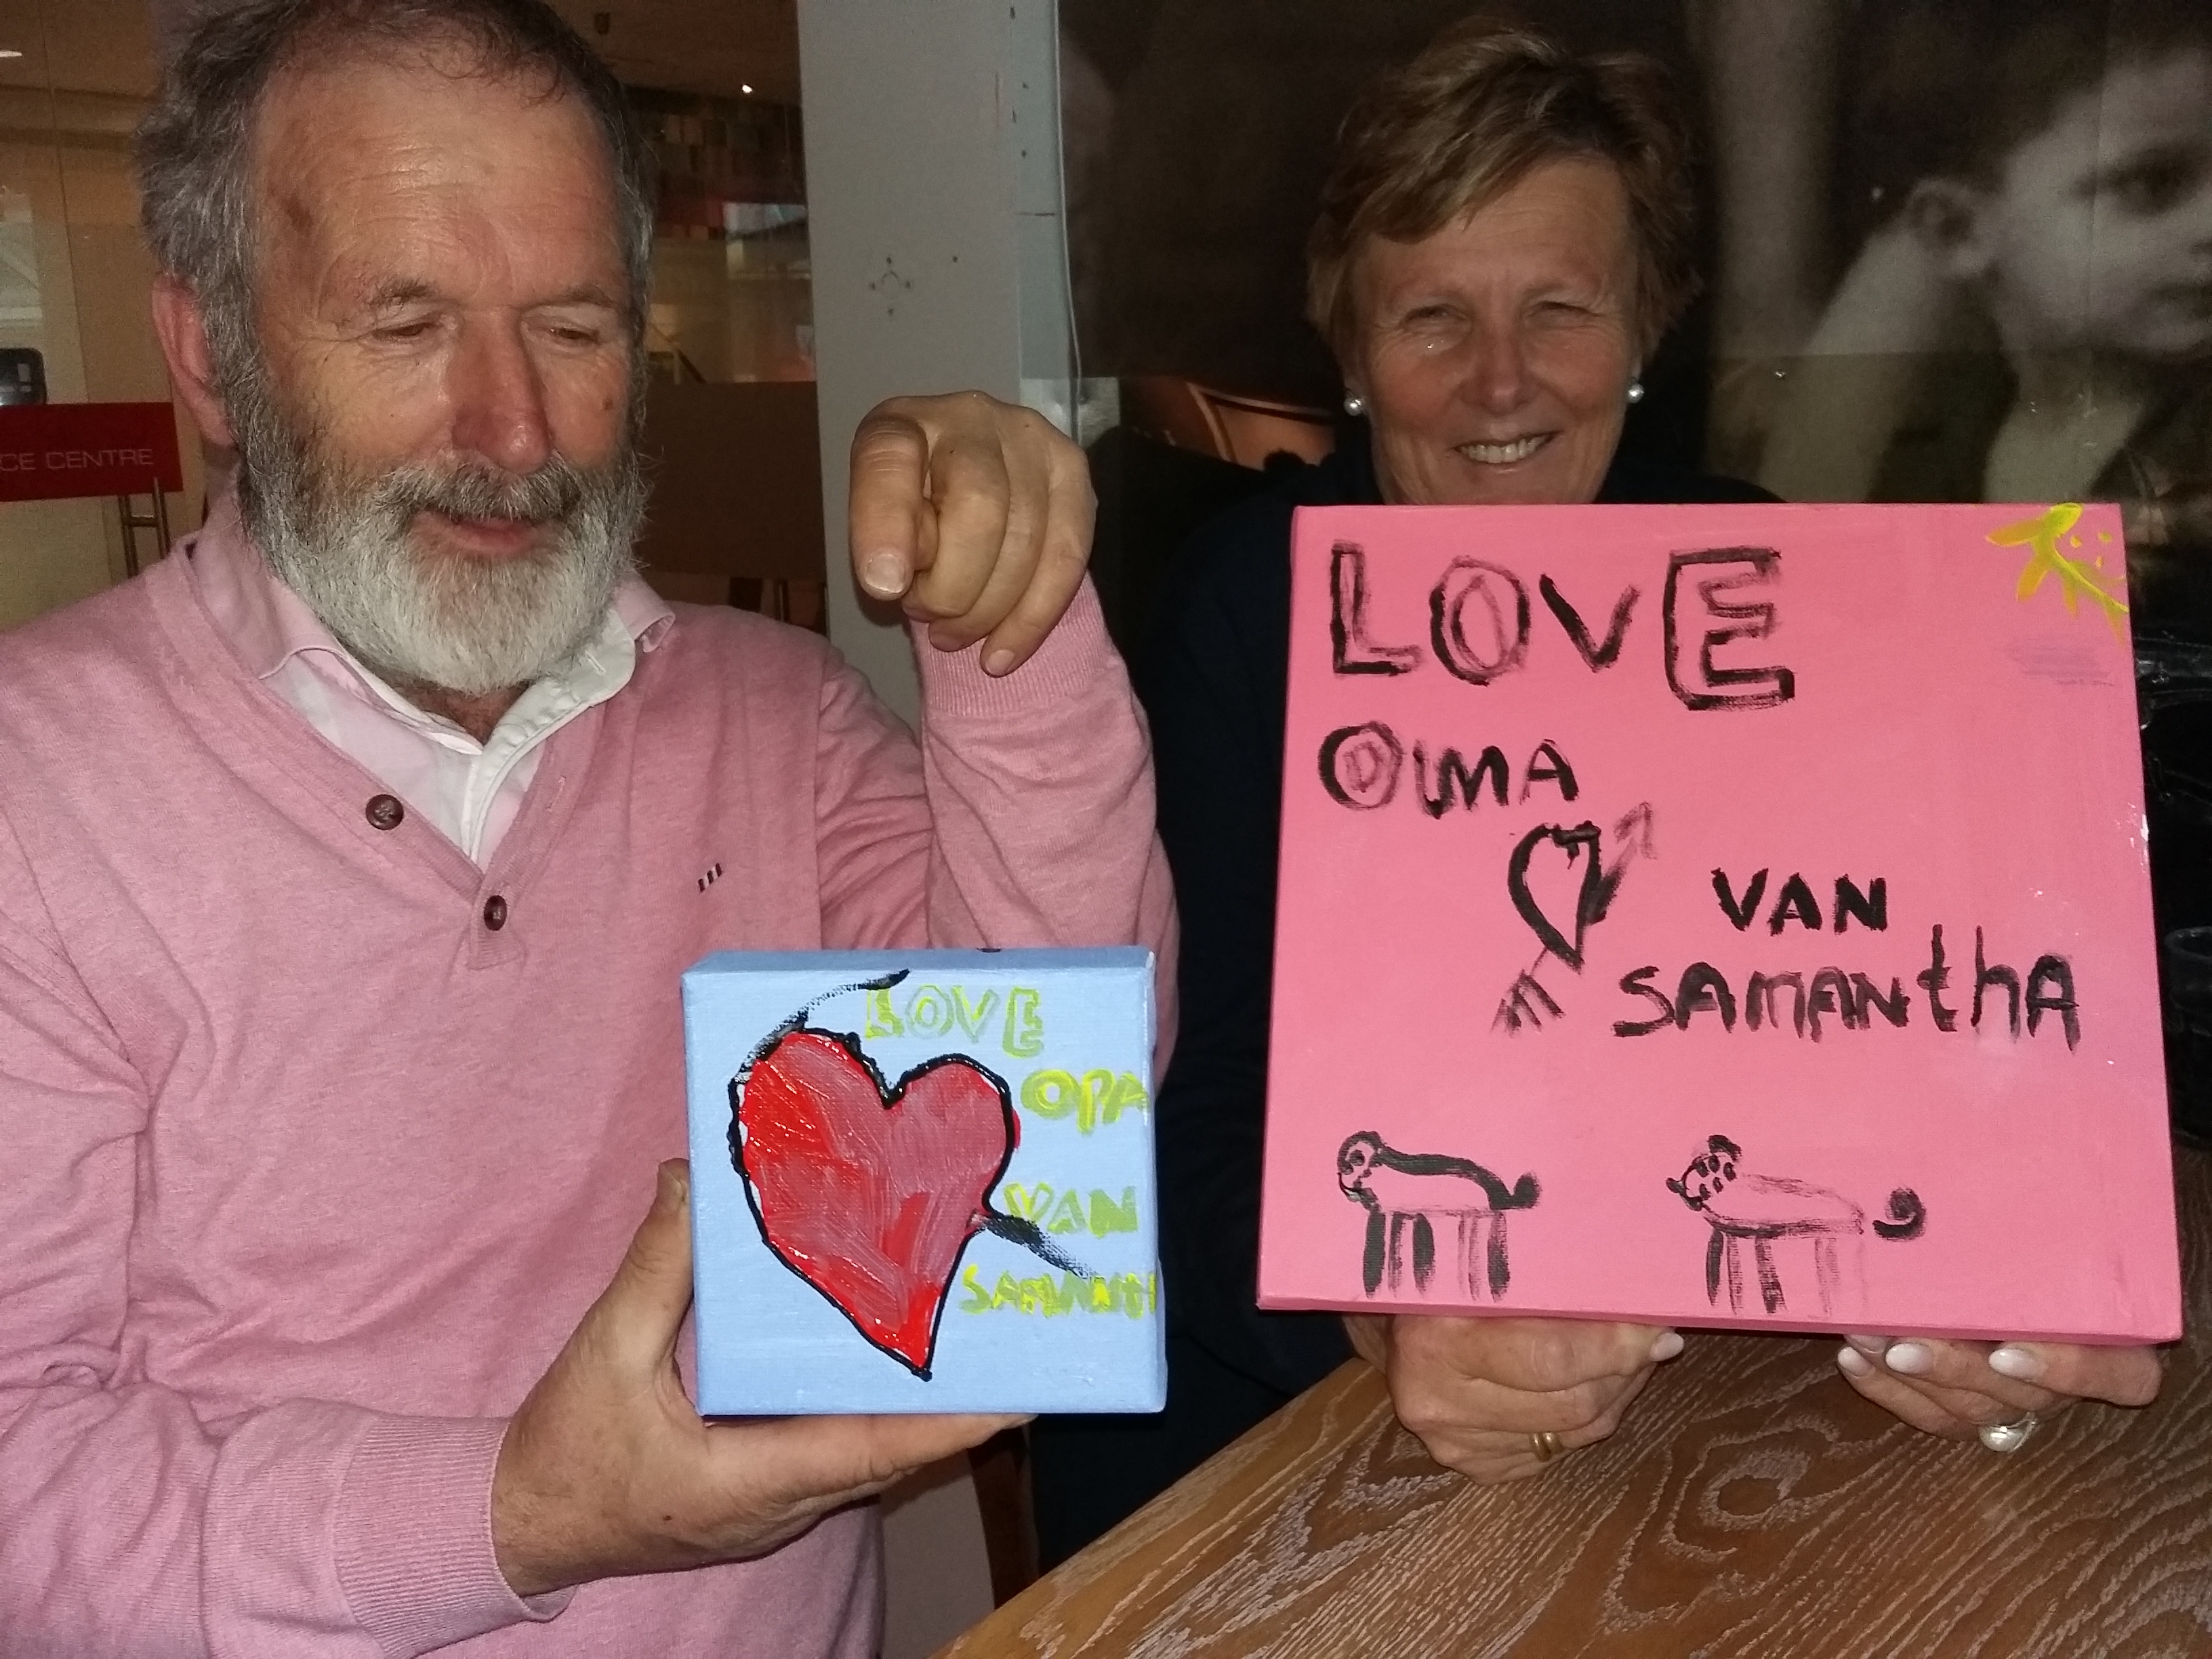 CE CENTRE
LOVE
OPA
VAN
SAMANTH
LOVE
OMA
VAN
SAMANthA